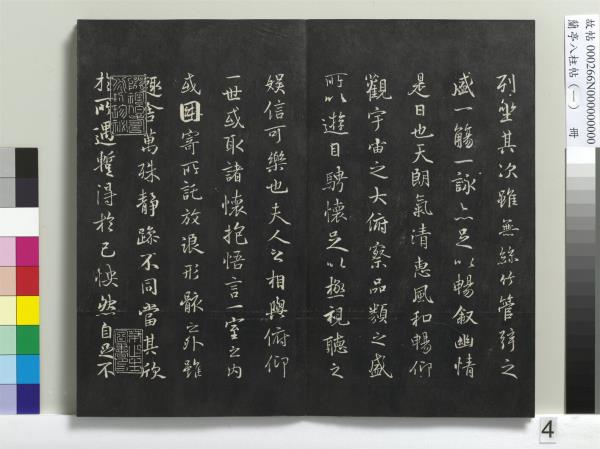 列坐其次雖無絲竹管弦之
盛一觴一詠亦足以暢敘幽情
是日也天朗氣清惠風和暢仰
觀宇宙之大俯察品類之盛
所以遊目騁懷足以極視聽之
娛信可樂也夫人之相與俯仰
一世或取諸懷抱悟言一室之內
或因寄所託放浪形骸之外雖
趣舍萬殊靜躁不同當其欣
於所遇蹔得於己怏然自足不
故帖 000266N000000000
蘭亭八柱帖(一) 冊
4